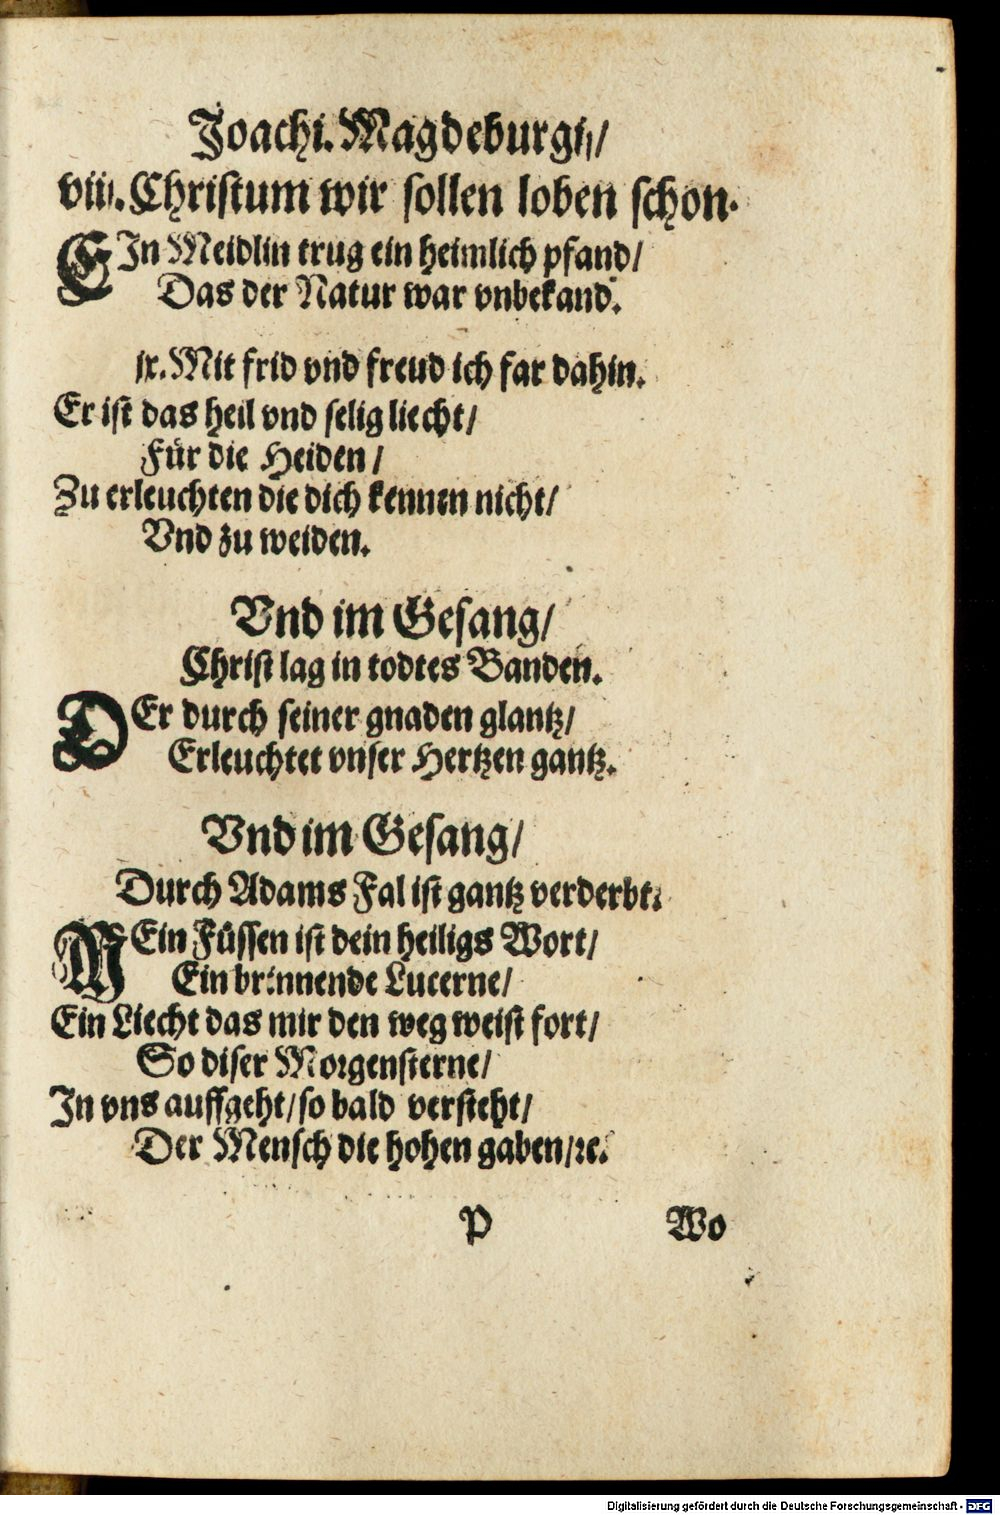 Joachi. Magdeburgij/
viij. Christum wir sollen loben schon.
EIn Meidlin trug ein heimlich pfand/
Das der Natur war vnbekand.
ix. Mit frid vnd freud ich far dahin.
Er ist das heil vnd selig liecht/
Für die Heiden/
Zu erleuchten die dich kennen nicht/
Vnd zu weiden.
Vnd im Gesang/
Christ lag in todtes Banden.
DEr durch seiner gnaden glantz/
Erleuchtet vnser Hertzen gantz.
Vnd im Gesang/
Durch Adams Fal ist gantz verderbt.
MEin Füssen ist dein heiligs Wort/
Ein brinnende Lucerne/
Ein Liecht das mir den weg weist fort/
So diser Morgensterne/
In vns auffgeht/ so bald versteht/
Der Mensch die hohen gaben/ ꝛc.
P Wo
Digitalisierung gefördert durch die Deutsche Forschungsgemeinschaft - DFG